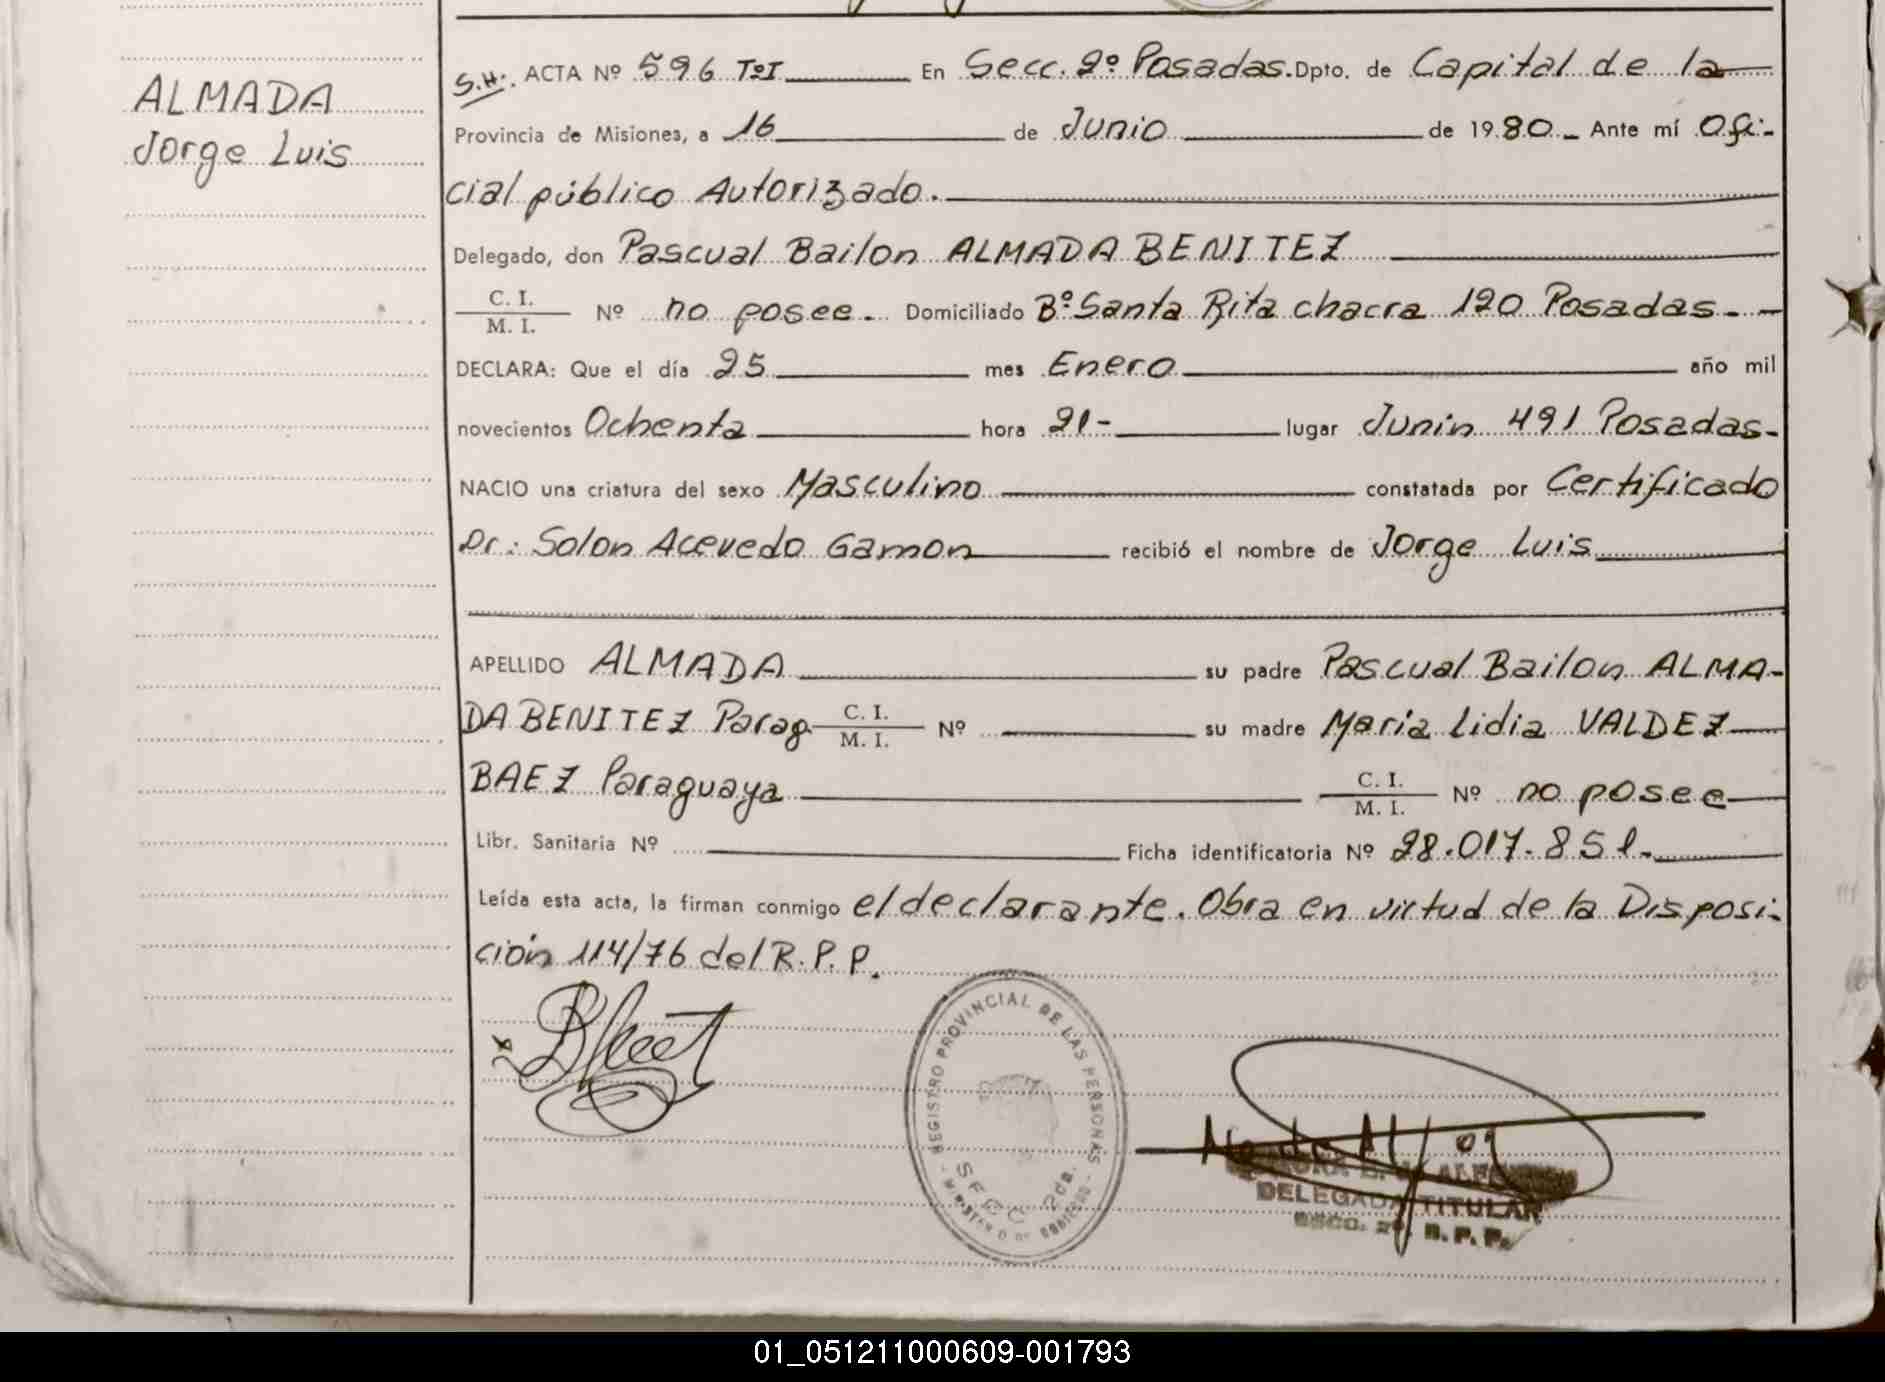 ALMADA
Jorge Luis
S.H. ACTA Nº 596 TºI En Secc. 2º Posadas. Dpto. de Capital de la
Provincia de Misiones, a 16 de Junio de 1980 Ante mí Ofi-
cial público Autorizado.
Delegado, don Pascual Bailon ALMADA BENITEZ
C. I.
M. I. Nº no posee. Domiciliado Bº Santa Rita chacra 120 Posadas.
DECLARA: Que el día 25 mes Enero año mil
novecientos Ochenta hora 21- lugar Junin 491 Posadas-
NACIO una criatura del sexo Masculino constatada por Certificado
Dr: Solon Acevedo Gamon recibió el nombre de Jorge Luis
APELLIDO ALMADA su padre Pascual Bailon ALMA-
DA BENITEZ Parag C. I. M. I. Nº su madre Maria Lidia VALDEZ
BAEZ Paraguaya C. I. M. I. Nº no posee
Libr. Sanitaria Nº Ficha identificatoria Nº 28.017.851.
Leída esta acta, la firman conmigo el declarante. Obra en virtud de la Disposi-
ción 114/76 del R. P. P.
REGISTRO PROVINCIAL DE LAS PERSONAS
SECC 2da.
DELEGADA TITULAR
R. P. P.
01_051211000609-001793